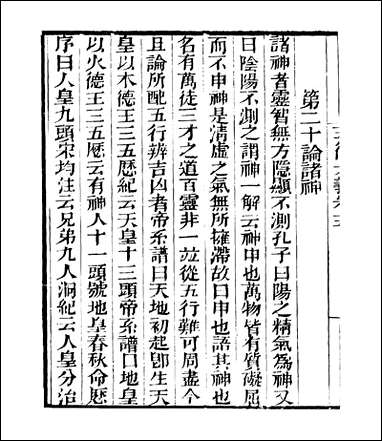 第二十論諸神
諸神者靈智無方隱顯不測孔子曰陽之精氣為神又
曰陰陽不測之謂神一解云神申也萬物皆有質礙屈
而不申神是清虛之氣無所擁滯故曰申也語其神也
名有萬徒三才之道百靈非一竝從五行難可周盡今
且論所配五行辨吉凶者帝系譜曰天地初起卽生天
皇以木德王三五厯紀云天皇十三頭帝系譜曰地皇
以火德王三五厯云有神人十一頭號地皇春秋命厯
序曰人皇九頭宋均注云兄弟九人洞紀云人皇分治